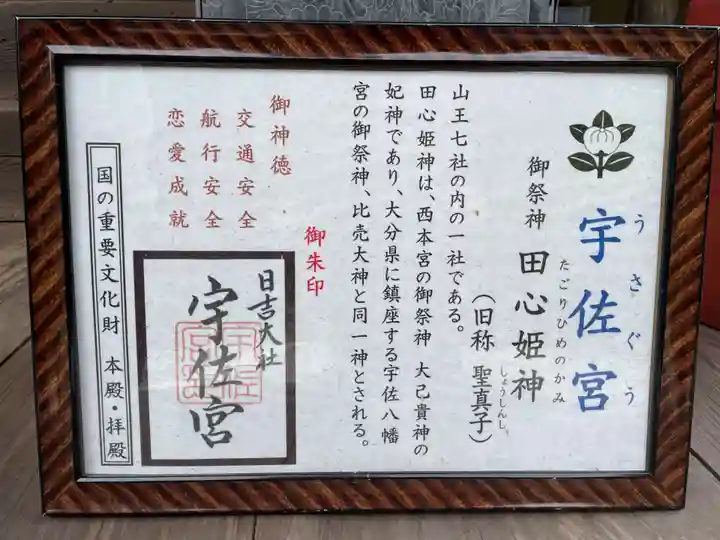 宇佐宮
うさぐう
御祭神 田心姫神
たごりひめのかみ
(旧称 聖真子)
しょうしんし
山王七社の内の一社である。
田心姫神は、西本宮の御祭神 大己貴神の
妃神であり、大分県に鎮座する宇佐八幡
宮の御祭神、比売大神と同一神とされる。
御朱印
日吉大社
宇佐宮
御神徳
交通安全
航行安全
恋愛成就
国の重要文化財 本殿・拝殿